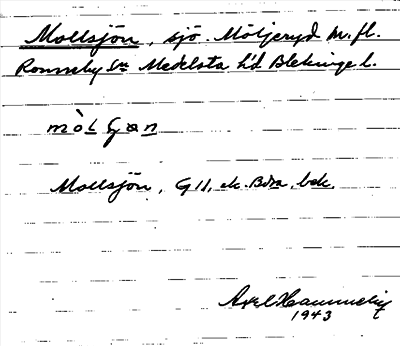 Mollsjön, sjö. Möljeryd m. fl.
Ronneby sn Medelsta hd Blekinge l.
mòlɧɷn
Mollsjön, G 11, ek. Bdra, bek.
Axel
1943